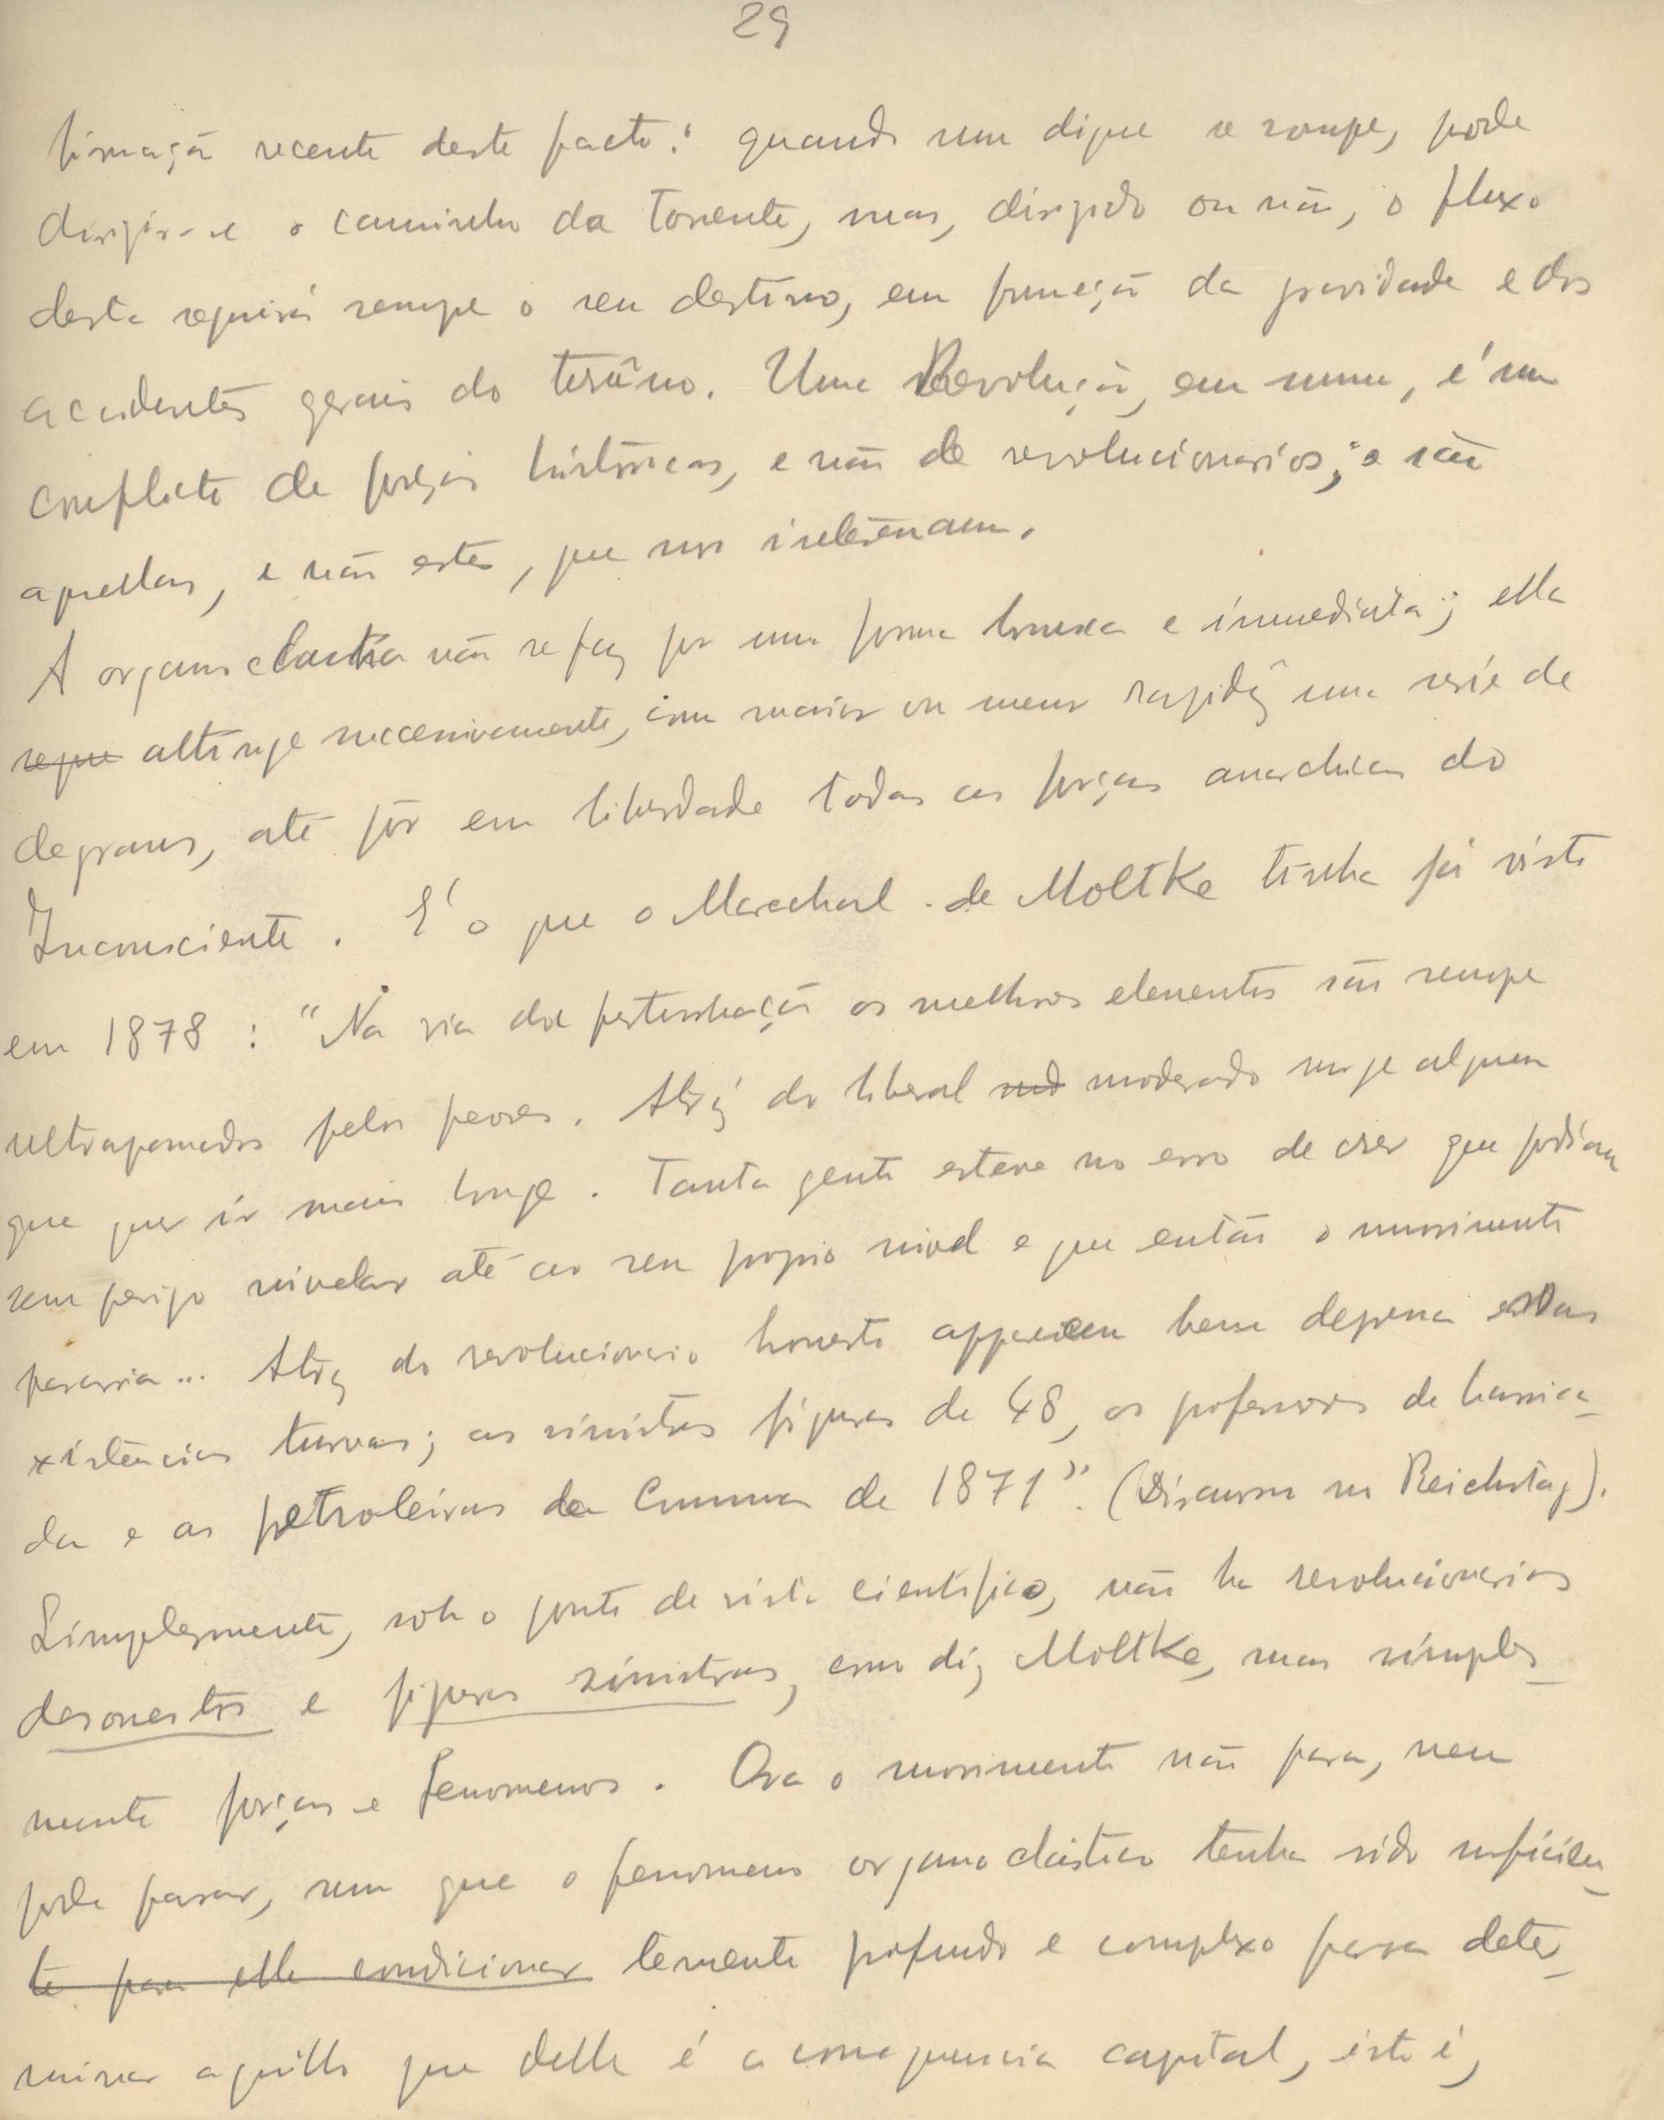 29
firmação recente deste facto: quando um dique se rompe, pode
dirigir-se o caminho da torrente, mas, dirigido ou não, o fluxo
desta seguirá sempre o seu destino, em funcção da gravidade e dos
accidentes gerais do terreno. Uma Revolução, em summa, é um
conflicto de forças historicas, e não de revolucionarios; e são
aquellas, e não estes, que nos interessam.
A organoclastia não se faz por uma forma brusca e immediata; ella
segue attinge successivamente, com maior ou menor rapidez uma serie de
degraus, até pôr em liberdade todas as forças anarchicas do
Inconsciente. E' o que o Marechal de Moltke tinha já visto
em 1878 : "Na via da perturbação os melhores elementos são sempre
ultrapassados pelos peores. Atraz do liberal mod moderado surge alguem
que quer ir mais longe. Tanta gente esteve no erro de crer que podiam
sem perigo nivelar até ao seu proprio nivel e que então o movimento
pararia... Atraz do revolucionario honesto apparecem bem depressa essas
existencias turvas; as sinistras figuras de 48, os professores de barrica-
da e as petroleiras da Communa de 1871". (Discurso no Reichstag).
Simplesmente, sob o ponto de vista cientifico, não ha revolucionarios
desonestos e figuras sinistras, como diz Moltke, mas simples-
mente forças e fenomenos. Ora o movimento não para, nem
pode parar, sem que o fenomeno organoclastico tenha sido suficien-
te para elle condicionar temente profundo e complexo para deter-
minar aquillo que delle é a consequencia capital, isto é,